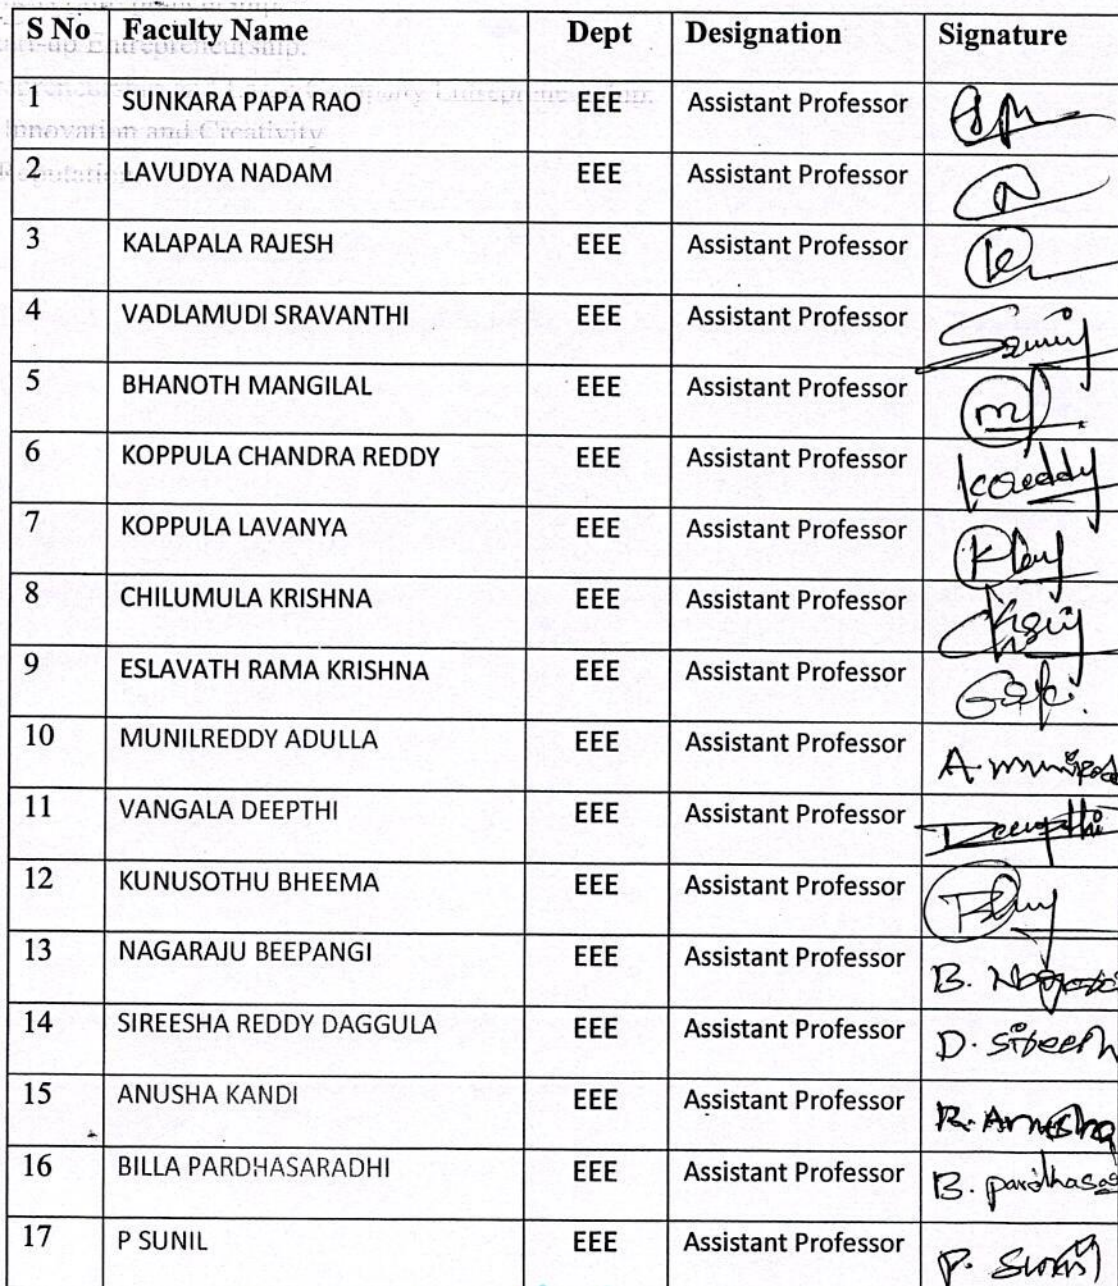 S No Faculty Name Dept Designation Signature
1 SUNKARA PAPA RAO EEE Assistant Professor
Innovation and Creativity
2 LAVUDYA NADAM EEE Assistant Professor
3 KALAPALA RAJESH EEE Assistant Professor
4 VADLAMUDI SRAVANTHI EEE Assistant Professor
5 BHANOTH MANGILAL EEE Assistant Professor
6 KOPPULA CHANDRA REDDY EEE Assistant Professor KCReddy
7 KOPPULA LAVANYA EEE Assistant Professor
8 CHILUMULA KRISHNA EEE Assistant Professor
9 ESLAVATH RAMA KRISHNA EEE Assistant Professor
10 MUNILREDDY ADULLA EEE Assistant Professor
11 VANGALA DEEPTHI EEE Assistant Professor Deepthi
12 KUNUSOTHU BHEEMA EEE Assistant Professor
13 NAGARAJU BEEPANGI EEE Assistant Professor B.
14 SIREESHA REDDY DAGGULA EEE Assistant Professor D. Sireesh
15 ANUSHA KANDI EEE Assistant Professor K. Anusha
16 BILLA PARDHASARADHI EEE Assistant Professor B. pardhasa
17 P SUNIL EEE Assistant Professor P. Sunil